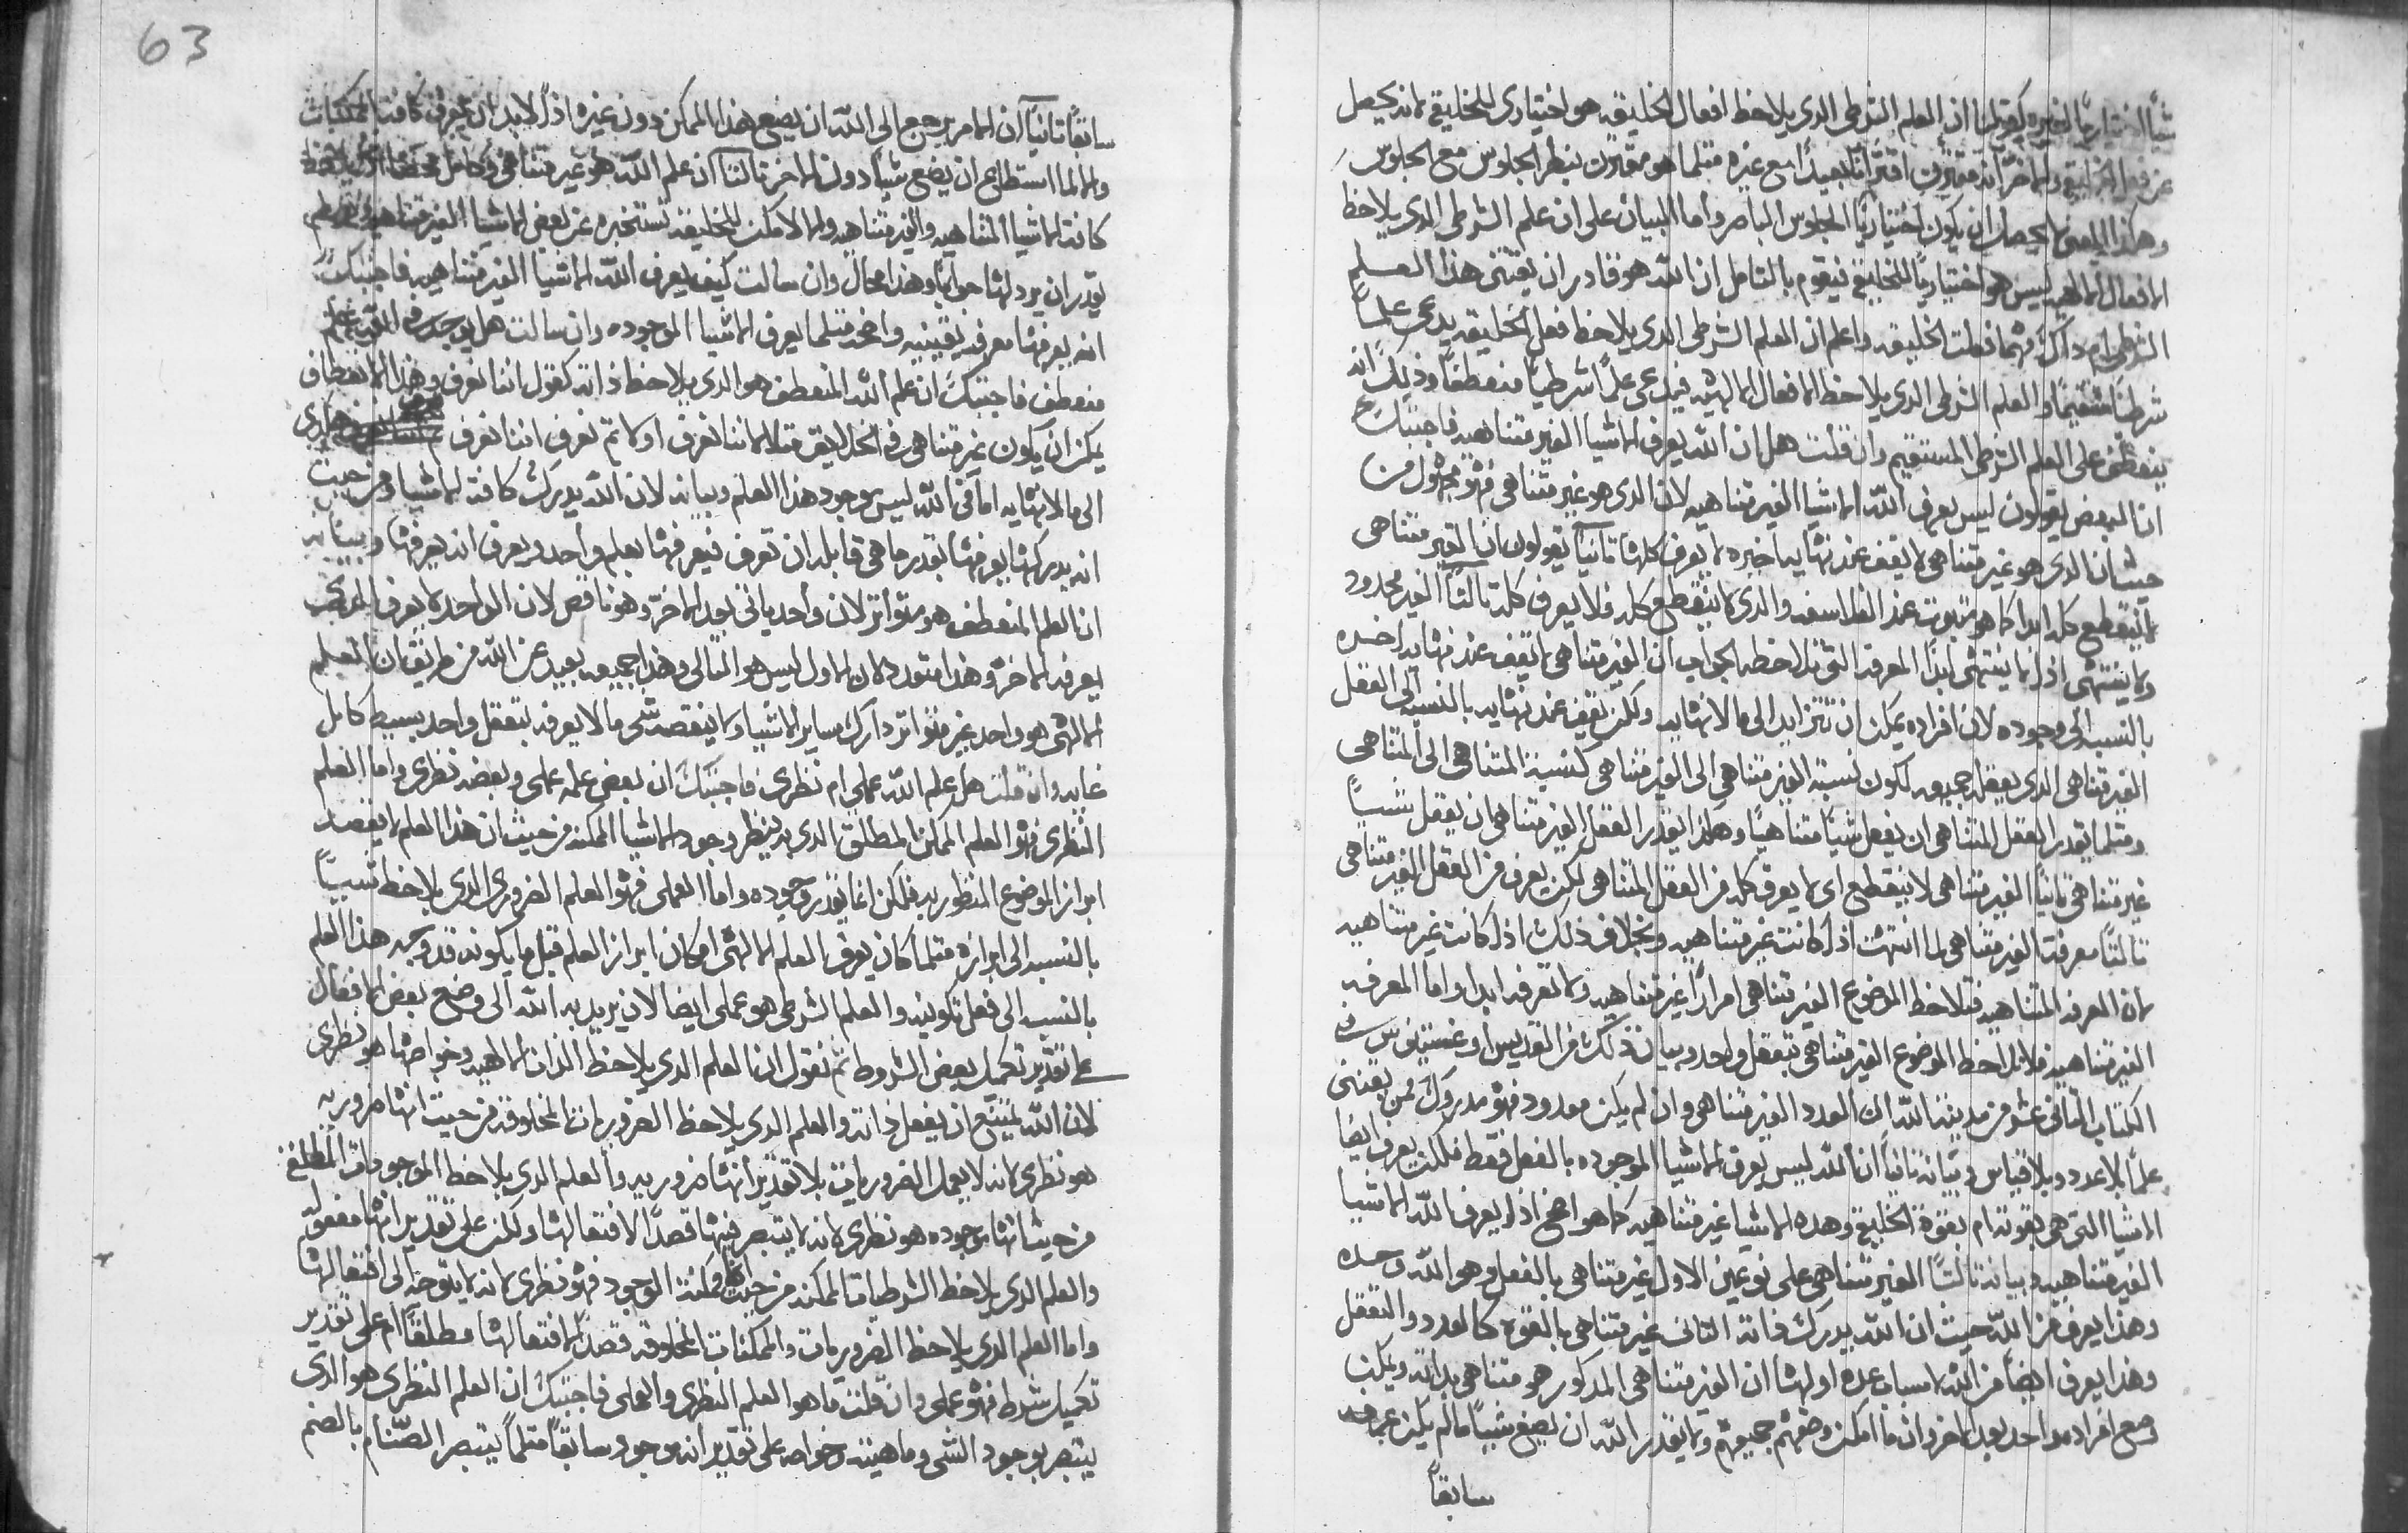 شيأ اختياريًا لغيره كقولنا ان العلم الشرطي الدي يلاحظ افعال الخليقه هو اختياري للخليقه لانه يحصل
عن فعل الخليقه والاخر انه مقترن اقترانًا بعيدًا مع غيره مثلما هو مقترن بنظر الجلوس مع الجلوس
وهكذا المعني لا يحصل ان يكون اختياريًا الجلوس الباصر واما البيان على ان علم الشرطي الدي يلاحظ
الافعال الالهيه ليس هو اختياريًا للخليقه فيقوم بالتامل ان الله هو قادر ان يقتني هذا العلم
الشرطي ام داك مهما فعلت الخليقه واعلم ان العلم الشرطي الدي يلاحظ فعل الخليقه يدعى علمًا
شرطيًا مستقيمًا والعلم الشرطي الدي يلاحظ الافعال الالهيه فيدعى علمًا شرطيًا منعطفًا وذلك انه
ينعطف على العلم الشرطي المستقيم وان قلت هل ان الله يعرف الاشيا الغير متناهيه فاجبتك
ان البعض يقولون ليس يعرف الله الاشيا الغير متناهيه لان الدي هو غير متناهي فهو مجهول من
حيث ان الدي هو غير متناهي لا يقف عند نهايه اخيره لا يعرف كلها ثانيًا يقولون ان الغير متناهي
لا ينقطع كله ابدًا كما هو مثبوت عند الفلاسفه والدي لا ينقطع كله فلا يعرف كله ثالثًا الغير محدود
ولا ينتهي اذًا لا ينتهي ابدًا المعرفه التي تلاحظه الجواب ان الغير متناهي لا يقف عند نهايه اخيره
بالنسبه الى وجوده لان افراده يمكن ان تتزايد الى ما لا نهايه ولكن يقف عند نهايه بالنسبه الى العقل
الغير متناهي الدي يعقل جميعه لكون نسبة الغير متناهي الى الغير متناهي كنسبة المتناهي الى المتناهي
ومثلما يقدر العقل المتناهي ان يعقل شيأً متناهيًا وهكذا يقدر العقل الغير متناهي ان يعقل شيأً
غير متناهي ثانيًا الغير متناهي لا ينقطع اي لا يعرف كله من العقل المتناهي لكن يعرف من العقل الغير متناهي
ثالثًا معرفة الغير متناهي لما انتهت اذًا كانت غير متناهيه وبخلاف ذلك اذًا كانت غير متناهيه
لان المعرفه المتناهيه فتلاحظ الموضوع الغير متناهي امرارًا غير متناهيه ولا تعرفه ابدا واما المعرفه
الغير متناهيه فلاتلاحظ الموضوع الغير متناهي بتعقل واحد وبيان ذلك من القديس اوغسطينوس في
الكتاب الثاني عشر من مدينة الله ان العدد الغير متناهي وان لم يكن معدود فهو مدروك لمن يقتني
علمًا بلا عدد وبلا قياس وبيانه ثانيًا ان الله ليس يعرف الاشيا الموجوده بالفعل فقط فلكن يعرف ايضا
الاشيا التي هي بقوته ام بقوة الخليقه وهده الاشيا غير متناهيه كما هو اضح اذًا يعرف الله الاشيا
الغير متناهيه وبيانه ثالثًا الغير متناهي على نوعين الاول غير متناهي بالفعل وهو الله وحده
وهذا يعرف من الله حيث ان الله يدرك ذاته الثاني غير متناهي بالقوه كالعدد والتعقل
وهذا يعرف ايضًا من الله لاسباب عده اولها ان الغير متناهي المدكور هو متناهي بداته ويمكن
وضع افراده واحد بعد الاخر وان ما امكن وضعهم جميعهم ولا يقدر الله ان يصنع شيأً ما لم يكن يعرفه
سابقاً
63
سابقًا ثانيًا ان الامر يرجع الى الله ان يصنع هذا الممكن دون غيره اذًا لابد ان يعرف كافة الممكنات
والا لما استطاع ان يصنع شيأً دون الاخر ثالثًا ان علم الله هو غير متناهي وكامل محضًا اذًا يلاحظ
كافة الاشيا المتناهيه والغير متناهيه والا لامكن للخليقه تستخبره عن بعض الاشيا الغير متناهيه ولم
يقدر ان يرد لها جوابًا وهذا محال وان سالت كيف يعرف الله الاشيا الغير متناهيه فاجبتك
انه يعرفها معرفه يقينيه واضحه مثلما يعرف الاشيا الموجوده وان سالت هل يوجد في الله علم
منعطف فاجبتك ان علم الله المنعطف هو الدي يلاحظ ذاته كقول اننا نعرف وهذا الانعطاف
يمكن ان يكون غير متناهي في الخلايق مثلا اننا نعرف اولا ثم نعرف اننا نعرف وهكذا
الى ما لا نهايه اما في الله ليس يوجد هذا العلم وبيانه لان الله يدرك كافة الاشيا ومن حيث
انه يدركها يعرفها بقدر ما هي قابله ان تعرف فيعرفها بعلم واحد ويعرف انه يعرفها وبيانه
ان العلم المنعطف هو متواتر لان واحد ياتي بعد الاخر وهو ناقص لان الواحد لا يعرف الدي
يعرفه الاخر وهذا متعدد لان الاول ليس هو التالي وهذا جميعه بعيد عن الله من طريق ان العلم
الالهي هو واحد غير متواتر دارك ساير الاشيا ولا ينقصه شي ما لا يعرفه بتعقل واحد بسيط كامل
غايه وان قلت هل علم الله عملي ام نظري فاجبتك ان بعض علمه عملي وبعضه نظري واما العلم
النظري فهو العلم الممكن المطلق الدي به ينظر وجود الاشيا الممكنه من حيث ان هذا العلم لا يقصد
ابراز الموضوع المنظور به فلكن انما يقدر وجوده واما العملي فهو العلم الضروري الدي يلاحظ شيأً
بالنسبه الى ابرازه مثلما كان يعرف العلم الالهي امكان ابراز العلم قبل ما يكونه قد وجد هذا العلم
بالنسبه الى فعل تكوينه والعلم الشرطي هو عملي ايضا لان يريد به الله الى وضع بعض الافعال
على تقدير تكميل بعض الشروط ثم نقول ان العلم الدي يلاحظ الذات الالهيه وخواصها هو نظري
لان الله يمتنع ان يفعل ذاته والعلم الدي يلاحظ الضروريات المخلوقه من حيث انها ضروريه
هو نظري لانه لا يعمل الضروريات بلا تقدير انها ضروريه والعلم الدي يلاحظ الموجودات المطلقه
من حيث انها موجوده هو نظري لانه لا يتبصر فيها قصدًا لافتعالها ولكن على تقدير انها مفعوله
والعلم الدي يلاحظ الشرطيات الممكنه من حيث انها ممكنة الوجود فهو نظري لانه لا يتوجه الى افتعالها
واما العلم الدي يلاحظ الضروريات والممكنات المخلوقه قصدًا لافتعالها مطلقًا ام على تقدير
تكميل شرط فهو عملي وان قلت ما هو العلم النظري والعملي فاجبتك ان العلم النظري هو الدي
يتبصر بوجود الشي وماهيته وخواصه على تقدير انه موجود سابقًا مثلما يتبصر الصنام بالصنم